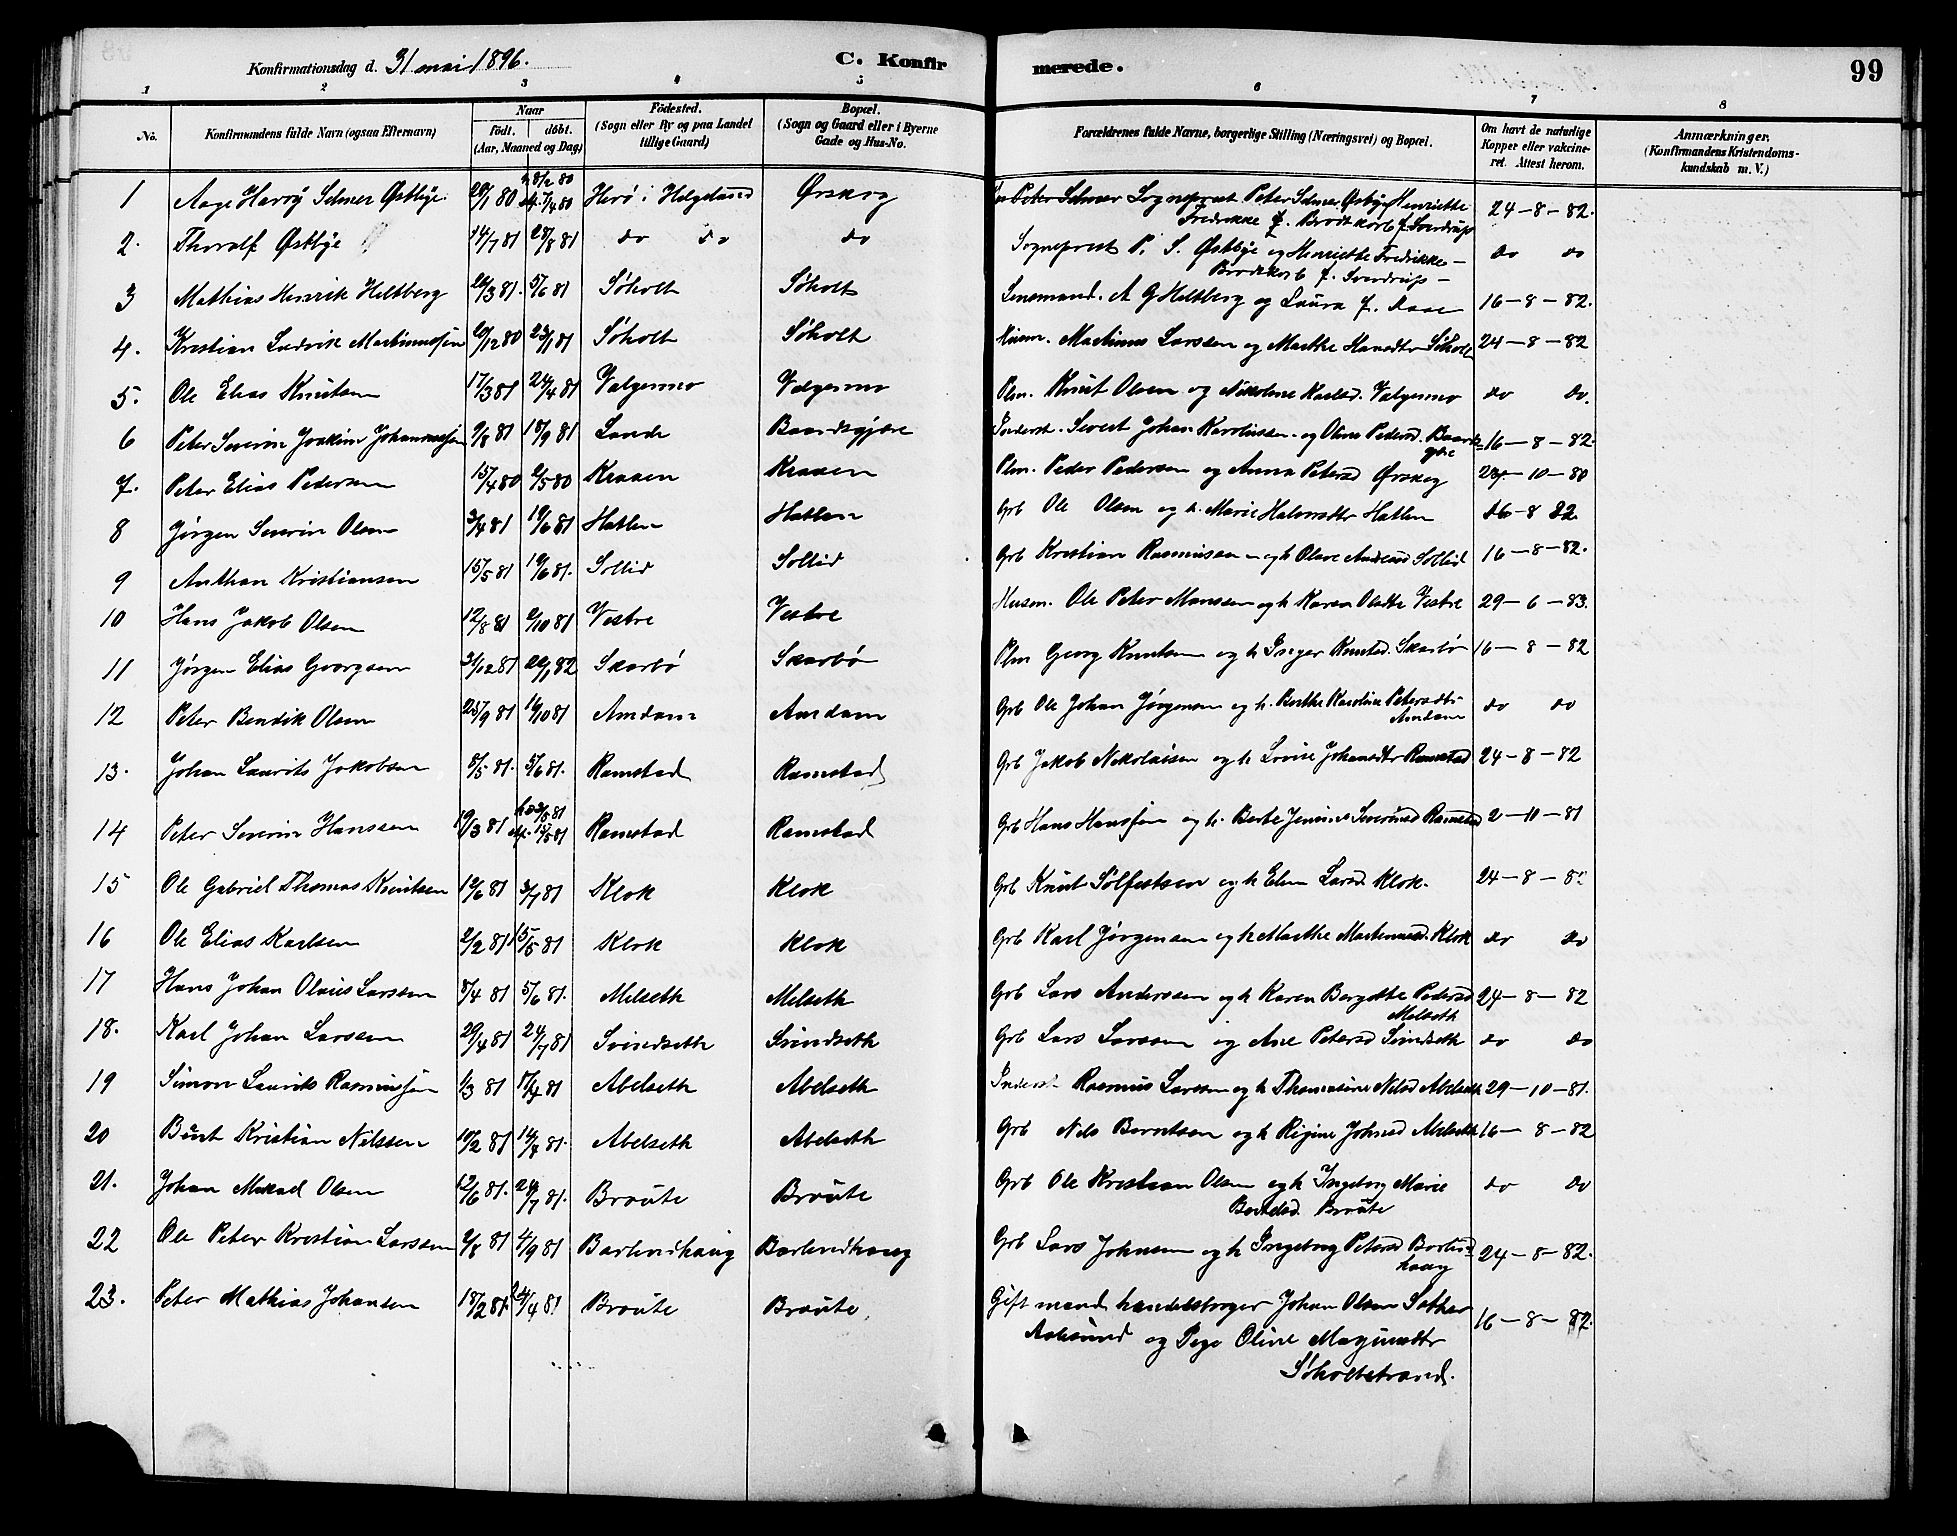 Konfirmationsdag d. 31 mai 1896.
C. Konfirmerede.
99
1 2 3 4 5 6 7 8
No.
Konfirmandens fulde Navn (ogsaa Efternavn)
Naar
födt. döbt.
(Aar, Maaned og Dag)
Födested.
(Sogn eller By og paa Landet
tillige Gaard)
Bopæl.
(Sogn og Gaard eller i Byerne
Gade og Hus-No.
Forældrenes fulde Navne, borgerlige Stilling (Næringsvei) og Bopæl.
Om havt de naturlige
Kopper eller vakcine-
ret. Attest herom.
Anmærkninger.
(Konfirmandens Kristendoms-
kundskab m. V.)
1 Aage Harry Selmer Østbye. 28/1 80 8/2 80 Herø i Helgeland Ørskog Sogneprest Peter Selmer Østbye Henriette 24-8-82.
7/4 80 Fredrikke Brodtkorb f. Sverdrup
2. Thoralf Østbye 14/7 81 28/8 81 do do do Sogneprest P. S. Østbye og Henriette Fredrikke do do
Brodtkorb f. Sverdrup
3 Mathias Henrik Heltberg 24/3 81. 5/6 81 Søholt Søholt Lensmand. A G Heltberg og Laura f. Daae 16-8-82.
4. Kristian Ludvik Martinussen 20/12 80 23/1 81 Søholt Søholt Husm. Martinus Larssen og Marthe Hansdtr Søholt 24-8-82
5. Ole Elias Knutsen 17/3 81 24/4 81 Valgermo Valgermo Plm. Knut Olsen og Nikoline Karlsd. Valgermo do do.
6 Peter Severin Joakim Johannessen 9/8 81 18/9 81 Lande Baardsgjære Inderst. Sivert Johan Karolussen og Oline Pedersd. Baards- 16-8-82.
gjære
7. Peter Elias Pedersen 15/4 80 2/5 80 Kraaen Kraaen Plm. Peder Pedersen og Anna Petersd Ørskog 24-10-80
8 Jørgen Severin Olsen 3/4 81 19/6 81 Hatlen Hatlen Grb Ole Olsen og h. Marie Halvorsdtr Hatlen 16-8 82.
9 Anthon Kristiansen 15/5 81 19/6 81. Sollid Sollid Grb Kristian Rasmussen og h Olave Andersd Sollid 16-8-82.
10 Hans Jakob Olsen 12/8 81 2/10 81 Vestre Vestre Husm. Ole Peter Monssen og h Karen Olsdtr Vestre 29-6-83.
11 Jørgen Elias Georgsen 31/12 81 22/1 82 Skarbø Skarbø Plm Georg Knutsen og h Inger Knutsd. Skarbø 16-8-82
12 Peter Bendik Olsen 25/9 81 16/10 81 Amdam Amdam Grb Ole Johan Jørgensen og h. Berthe Karoline Petersdtr do do
Amdam
13. Johan Laurits Jakobsen 8/5 81. 5/6 81. Ramstad Ramstad Grb Jakob Nikolaisen og h Lovise Johansdtr Ramstad 24-8-82
14 Peter Severin Hanssen 19/3 81 15/5 81 Ramstad Ramstad Grb Hans Hanssen og h. Berte Jensine Severinsd Ramstad 2-10-81
15 Ole Gabriel Thomas Knutsen 12/6 81 3/7 81 Klok Klok Grb Knut Sølfestsen og h Elen Larsd Klok. 24-8-82
16 Ole Elias Karlsen 2/2 81 15/5 81 Klok Klok Grb Karl Jørgensen og h Marthe Martinusd. Klok do do
17 Hans Johan Olaus Larssen 8/4 81 5/6 81. Melseth Melseth Grb Lars Anderssen og h Karen Bergitte Pedersd 24-8-82
Melseth
18. Karl Johan Larssen 29/4 81 24/7 81 Svindseth Svindseth Grb Lars Larssen og Ane Petersd Svindseth do do
19 Simon Laurits Rasmussen 1/3 81 17/4 81 Abelseth Abelseth Inderst Rasmus Larssen og h Thomasine Nilsd Abelseth 29-10-81.
20 Bernt Kristian Nilssen 10/2 81 18/4 81. Abelseth Abelseth Grb Nils Berntsen og h Rigine Johnsd Abelseth 16-8-82
21. Johan Mikael Olsen 12/6 81. 24/7 81. Braute Braute Grb Ole Kristian Olsen og h Ingeborg Marie do do
Bertelsd. Braute
22 Ole Peter Kristian Larssen 2/8 81 4/9 81 Barlindhaug Barlindhaug Grb Lars Johnsen og h Ingeborg Petersd Barlind- 24-8-82.
haug
23. Peter Mathias Johansen 18/2 81. 24/4 81 Braute Braute. Gift mand handelsborger Johan Olsen Sather 16-8-82.
Aalesund og Pige Oline Magnusdtr
Søholtstrand.